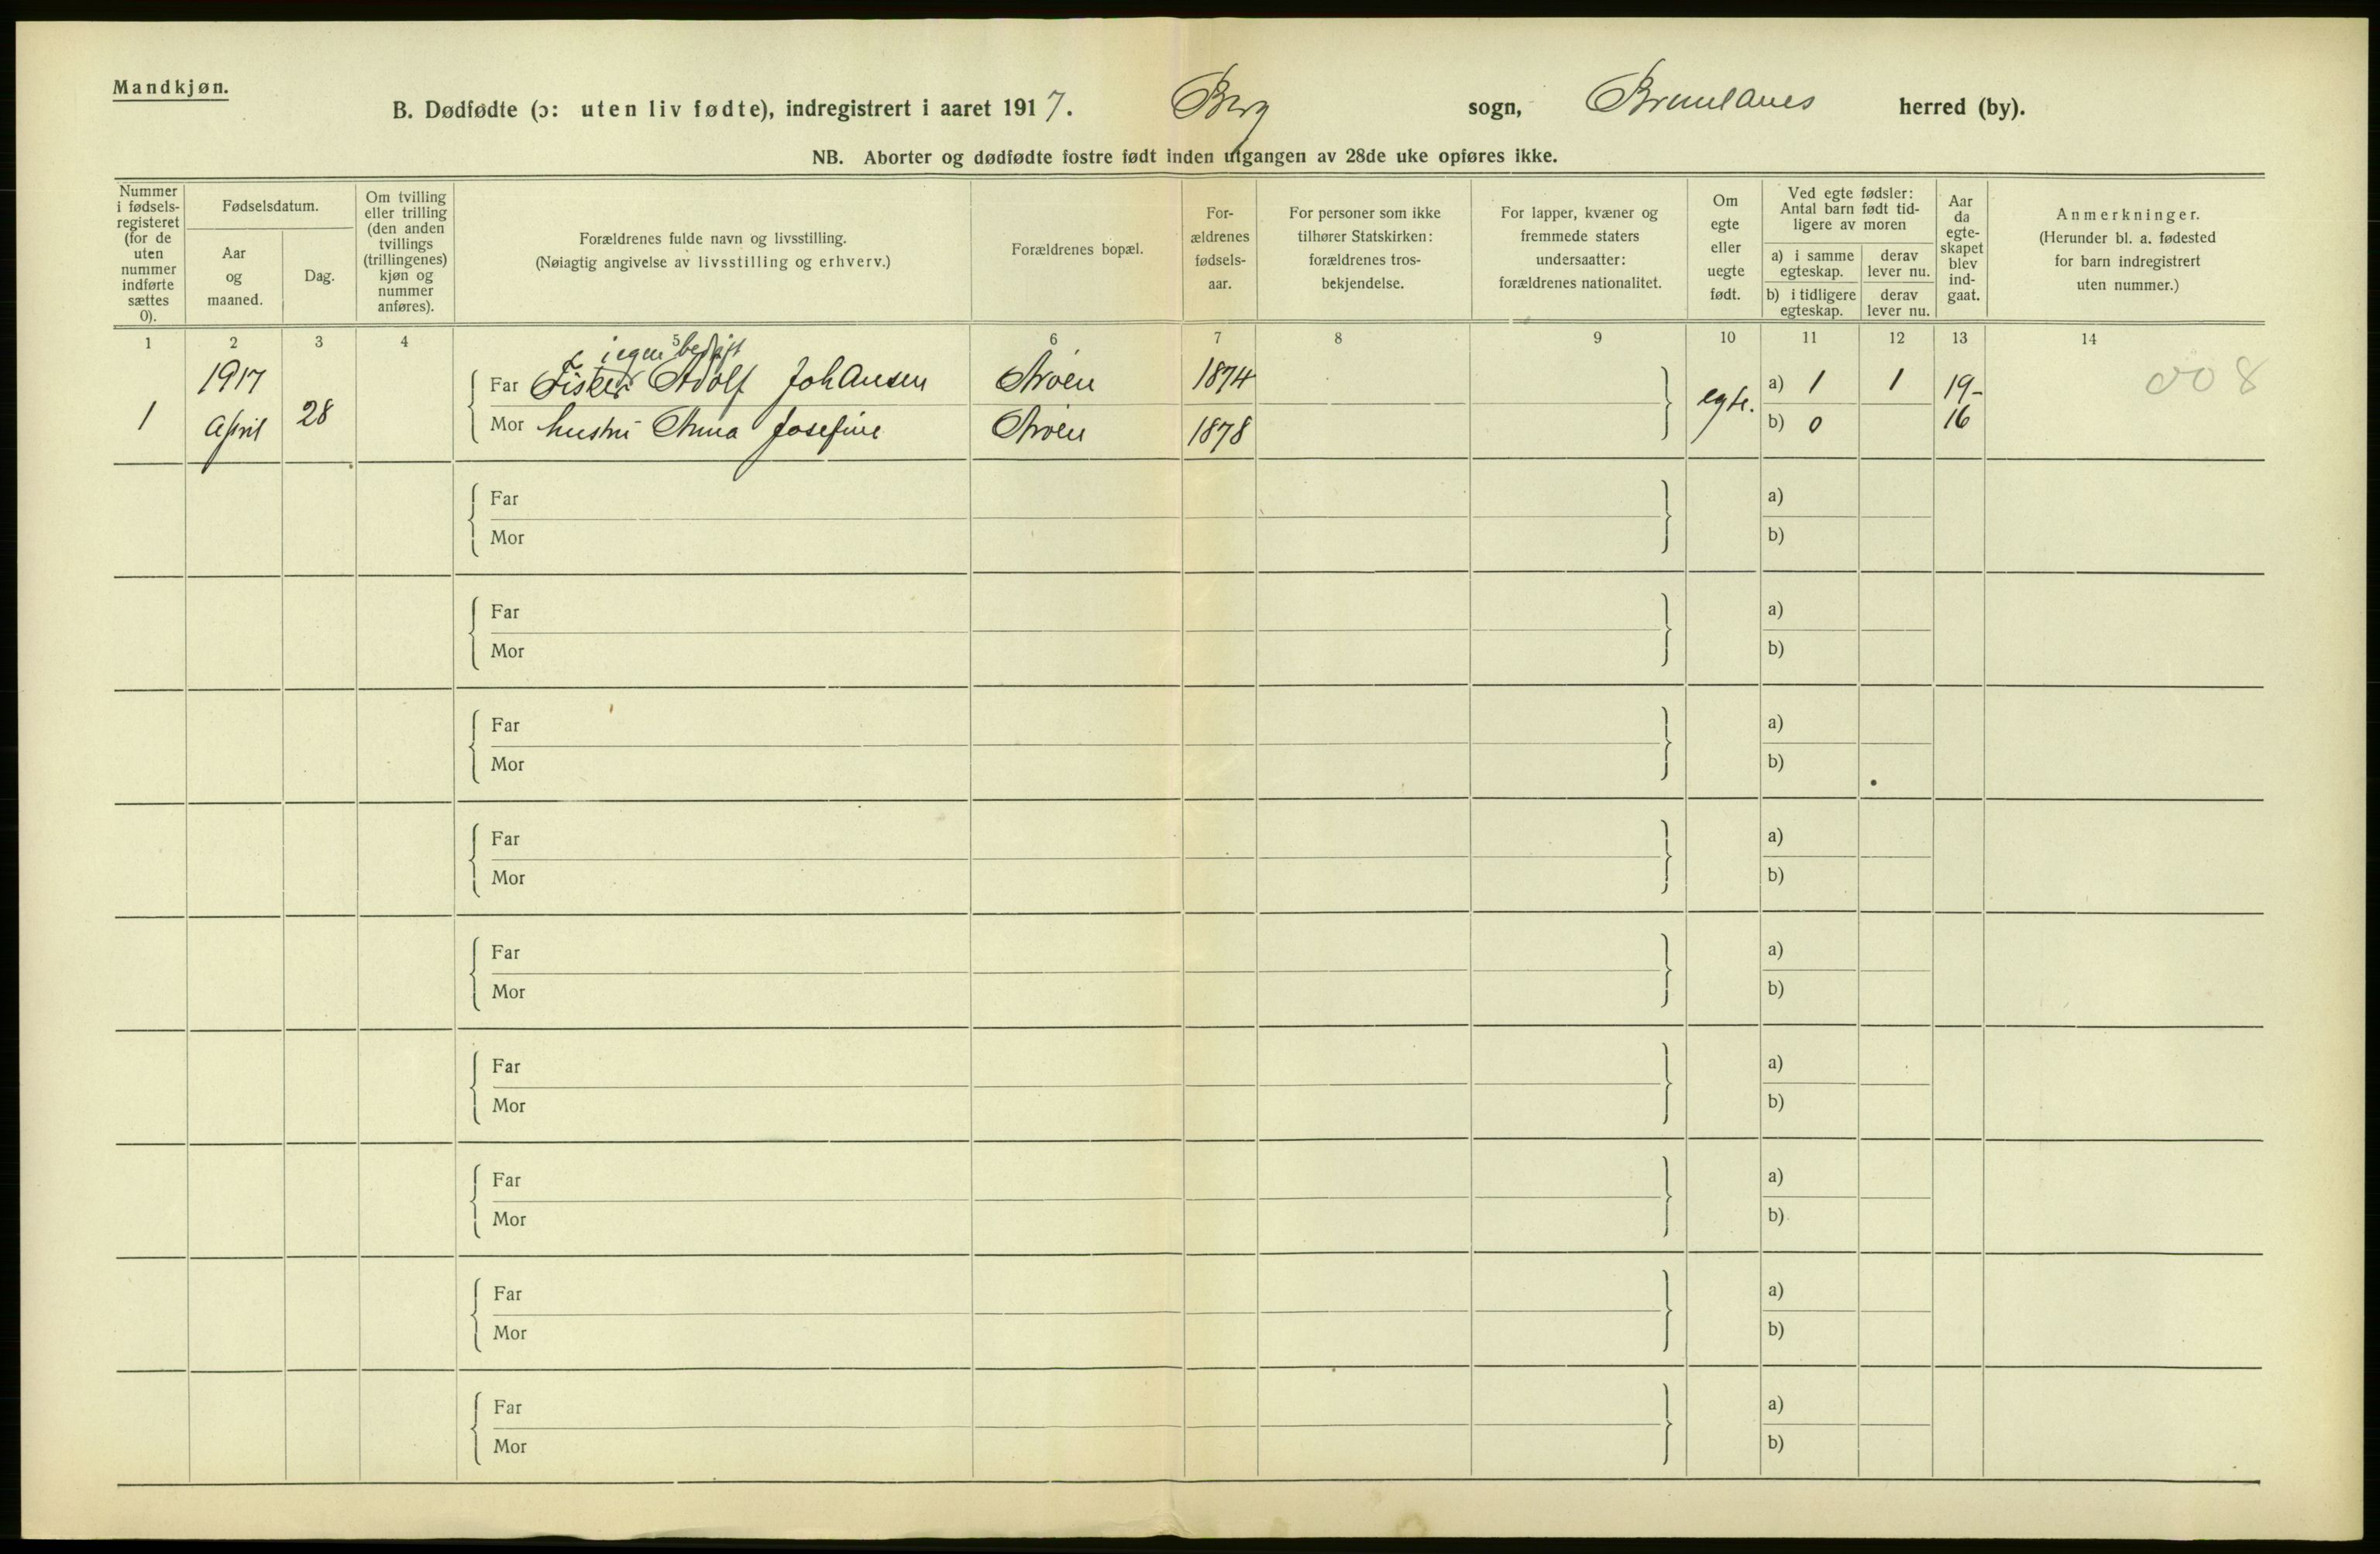 Mandkjøn.
B. Dødfødte (ɔ: uten liv fødte), indregistrert i aaret 1917. Berg sogn, Brunlanes herred (by).
NB. Aborter og dødfødte fostre født inden utgangen av 28de uke opføres ikke.
Nummer i fødsels-registeret (for de uten nummer indførte sættes 0).
Fødselsdatum.
Aar og maaned.
Dag.
Om tvilling eller trilling (den anden tvillings (trillingenes) kjøn og nummer anføres).
Forældrenes fulde navn og livsstilling.
(Nøiagtig angivelse av livsstilling og erhverv.)
Forældrenes bopæl.
For-ældrenes fødsels-aar.
For personer som ikke tilhører Statskirken: forældrenes tros-bekjendelse.
For lapper, kvæner og fremmede staters undersaatter: forældrenes nationalitet.
Om egte eller uegte født.
Ved egte fødsler: Antal barn født tid-ligere av moren
a) i samme egteskap.
derav lever nu.
b) i tidligere egteskap.
derav lever nu.
Aar da egte-skapet blev ind-gaat.
Anmerkninger.
(Herunder bl. a. fødested for barn indregistrert uten nummer.)
1 2 3 4 5 6 7 8 9 10 11 12 13 14
i egen bedrift
1 1917 April 28
Far Fisker Adolf Johansen Arøen 1874
Mor hustru Anna Josefine Arøen 1878
egte.
a) 1 1
b) 0
19-
16
008
Far a)
Mor b)
Far a)
Mor b)
Far a)
Mor b)
Far a)
Mor b)
Far a)
Mor b)
Far a)
Mor b)
Far a)
Mor b)
Far a)
Mor b)
Far a)
Mor b)